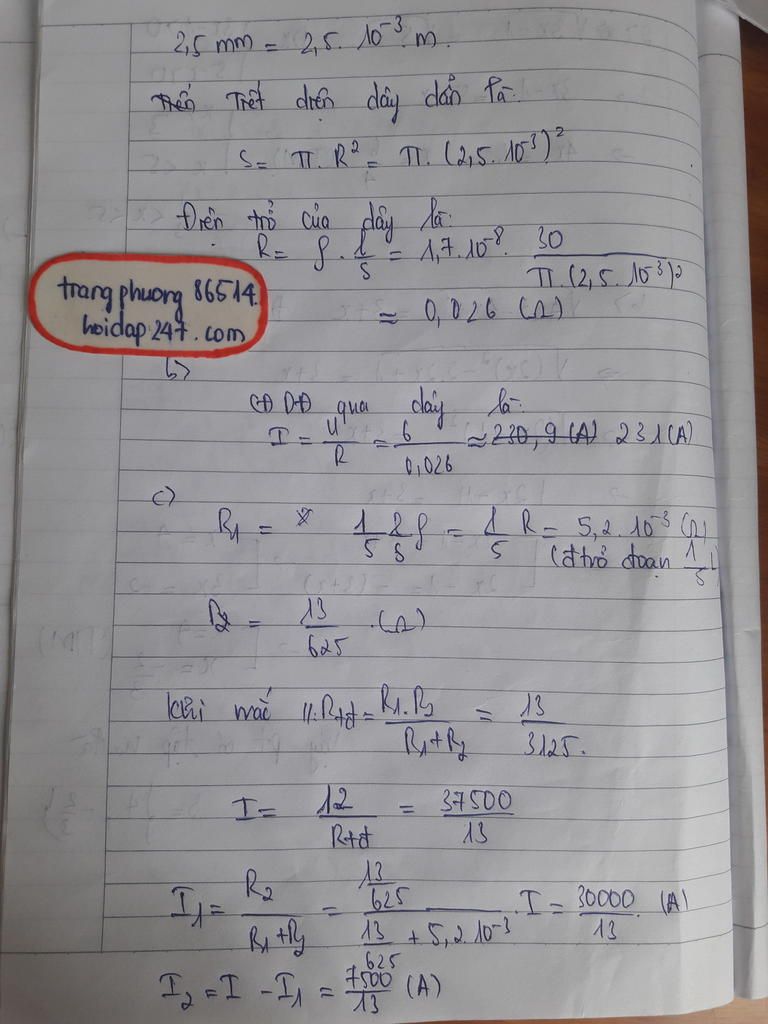 2,5 mm = 2,5. 10⁻³ m.
Tiết diện dây dẫn là:
S = π. R² = π. (2,5. 10⁻³)²
Điện trở của dây là:
R = ρ. l/S = 1,7. 10⁻⁸. 30/(π. (2,5. 10⁻³)²)
≈ 0,026 (Ω)
trangphuong86514.
hoidap247.com
b>
CĐDĐ qua dây là:
I = U/R = 6/0,026 ≈ 230,9 (A) 231 (A)
c)
R₁ = 1/5 l/S ρ = 1/5 R = 5,2. 10⁻³ (Ω)
(đtrở đoạn 1/5 l)
R₂ = 13/625 . (Ω)
Khi mắc //: Rtđ = R₁.R₂/(R₁+R₂) = 13/3125.
I = 12/Rtđ = 37500/13
I₁ = R₂/(R₁+R₂) = (13/625)/(13/625 + 5,2. 10⁻³) . I = 30000/13. (A)
I₂ = I - I₁ = 7500/13 (A)